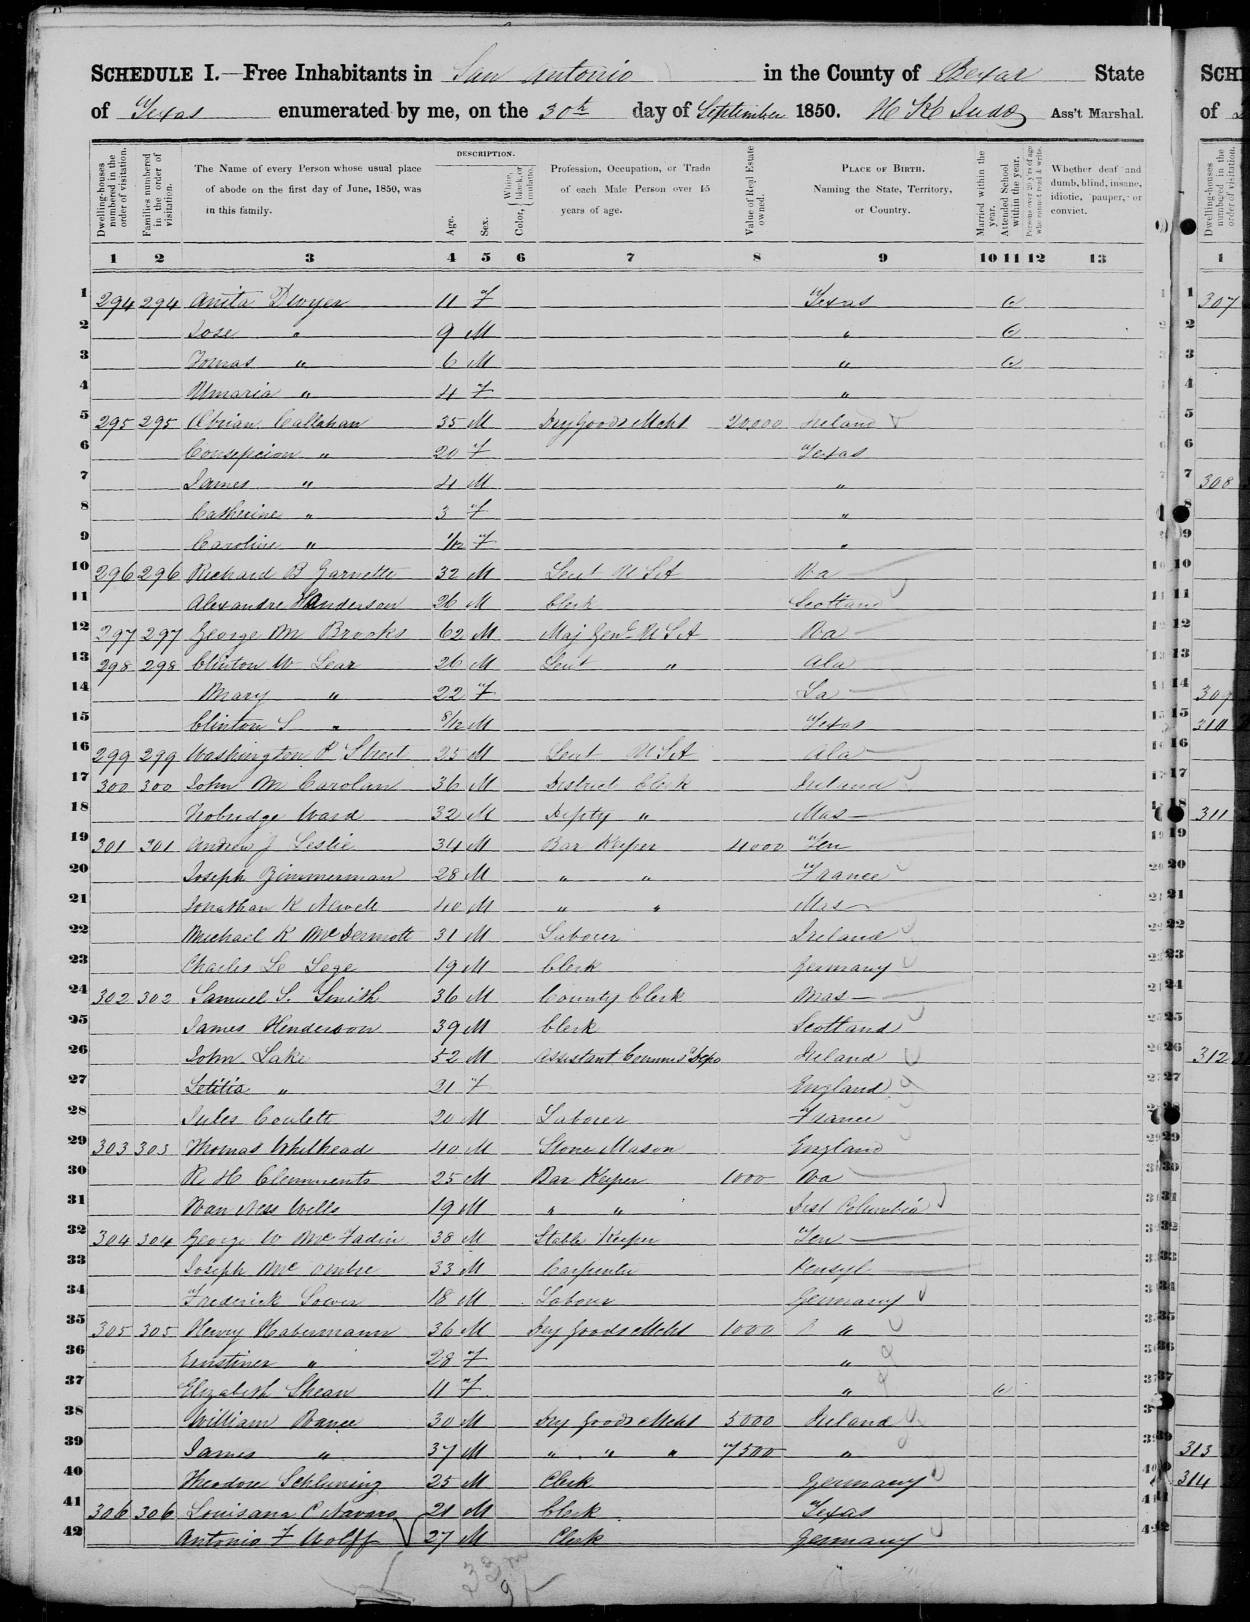 SCHEDULE I.—Free Inhabitants in San Antonio in the County of Bexar State
of Texas enumerated by me, on the 30th day of September 1850. Ass't Marshal.
Dwelling-houses numbered in the order of visitation.
Families numbered in the order of visitation.
The Name of every Person whose usual place of abode on the first day of June, 1850, was in this family.
DESCRIPTION.
Age.
Sex.
Color, White, black, or mulatto.
Profession, Occupation, or Trade of each Male Person over 15 years of age.
Value of Real Estate owned.
PLACE OF BIRTH. Naming the State, Territory, or Country.
Married within the year.
Attended School within the year.
Persons over 20 y'rs of age who cannot read & write.
Whether deaf and dumb, blind, insane, idiotic, pauper, or convict.
1 2 3 4 5 6 7 8 9 10 11 12 13
1 294 294 Anita Dwyer 11 F Texas
2 Jose " 9 M "
3 Tomas " 6 M "
4 " 4 F "
5 295 295 Obrian Callahan 35 M Dry Goods Mcht 20,000 Ireland
6 Consepcion " 20 F Texas
7 James " 4 M "
8 Catherine " 3 F "
9 Caroline " 1/12 F "
10 296 296 Richard B Garnette 32 M Leut U S A Va
11 Alexandre Handerson 26 M Clerk Scotland
12 297 297 George M Brooks 62 M Maj Genl U S A Va
13 298 298 Clinton W Lear 26 M Leut " Ala
14 Mary " 22 F La
15 Clinton S " 8/12 M Texas
16 299 299 Washington P Street 25 M Leut U S A Ala
17 300 300 John M Carolan 36 M District Clerk Ireland
18 Trobridge Ward 32 M Depty " Mas
19 301 301 Andrew J Leslie 34 M Bar Keeper 4000 Ten
20 Joseph Zimmerman 28 M " " France
21 Jonathan K Newell 40 M " " Mas
22 Michael K McDermott 31 M Laborer Ireland
23 Charles Le Lege 19 M Clerk Germany
24 302 302 Samuel S. Smith 36 M County Clerk Mas
25 James Henderson 39 M Clerk Scotland
26 John Lake 52 M Assistant Commis Depo Ireland
27 Letitia " 21 F England
28 Jules Coulett 20 M Laborer France
29 303 303 Thomas Whithead 40 M Stone Mason England
30 R. H Clemments 25 M Bar Keeper 1000 Va
31 Van Ness Wells 19 M " " Dist Columbia
32 304 304 George W McFadin 38 M Stable Keeper Ten
33 Joseph Mc 33 M Carpenter Pensyl
34 Frederick 18 M Laborer Germany
35 305 305 Henry Habermann 36 M Dry Goods Mcht 1000 "
36 Ernstiner " 28 F "
37 Elizabeth Shean 11 F "
38 William Vance 30 M Dry Goods Mcht 5000 Ireland
39 James " 37 M " " " 7500 "
40 Theodore Schleuning 25 M Clerk Germany
41 306 306 Louisana C Navaro 21 M Clerk Texas
42 Antonio F Wolff 27 M Clerk Germany
33 m
9 f
SCHE
of
1
307
308
309
310
311
312
313
314